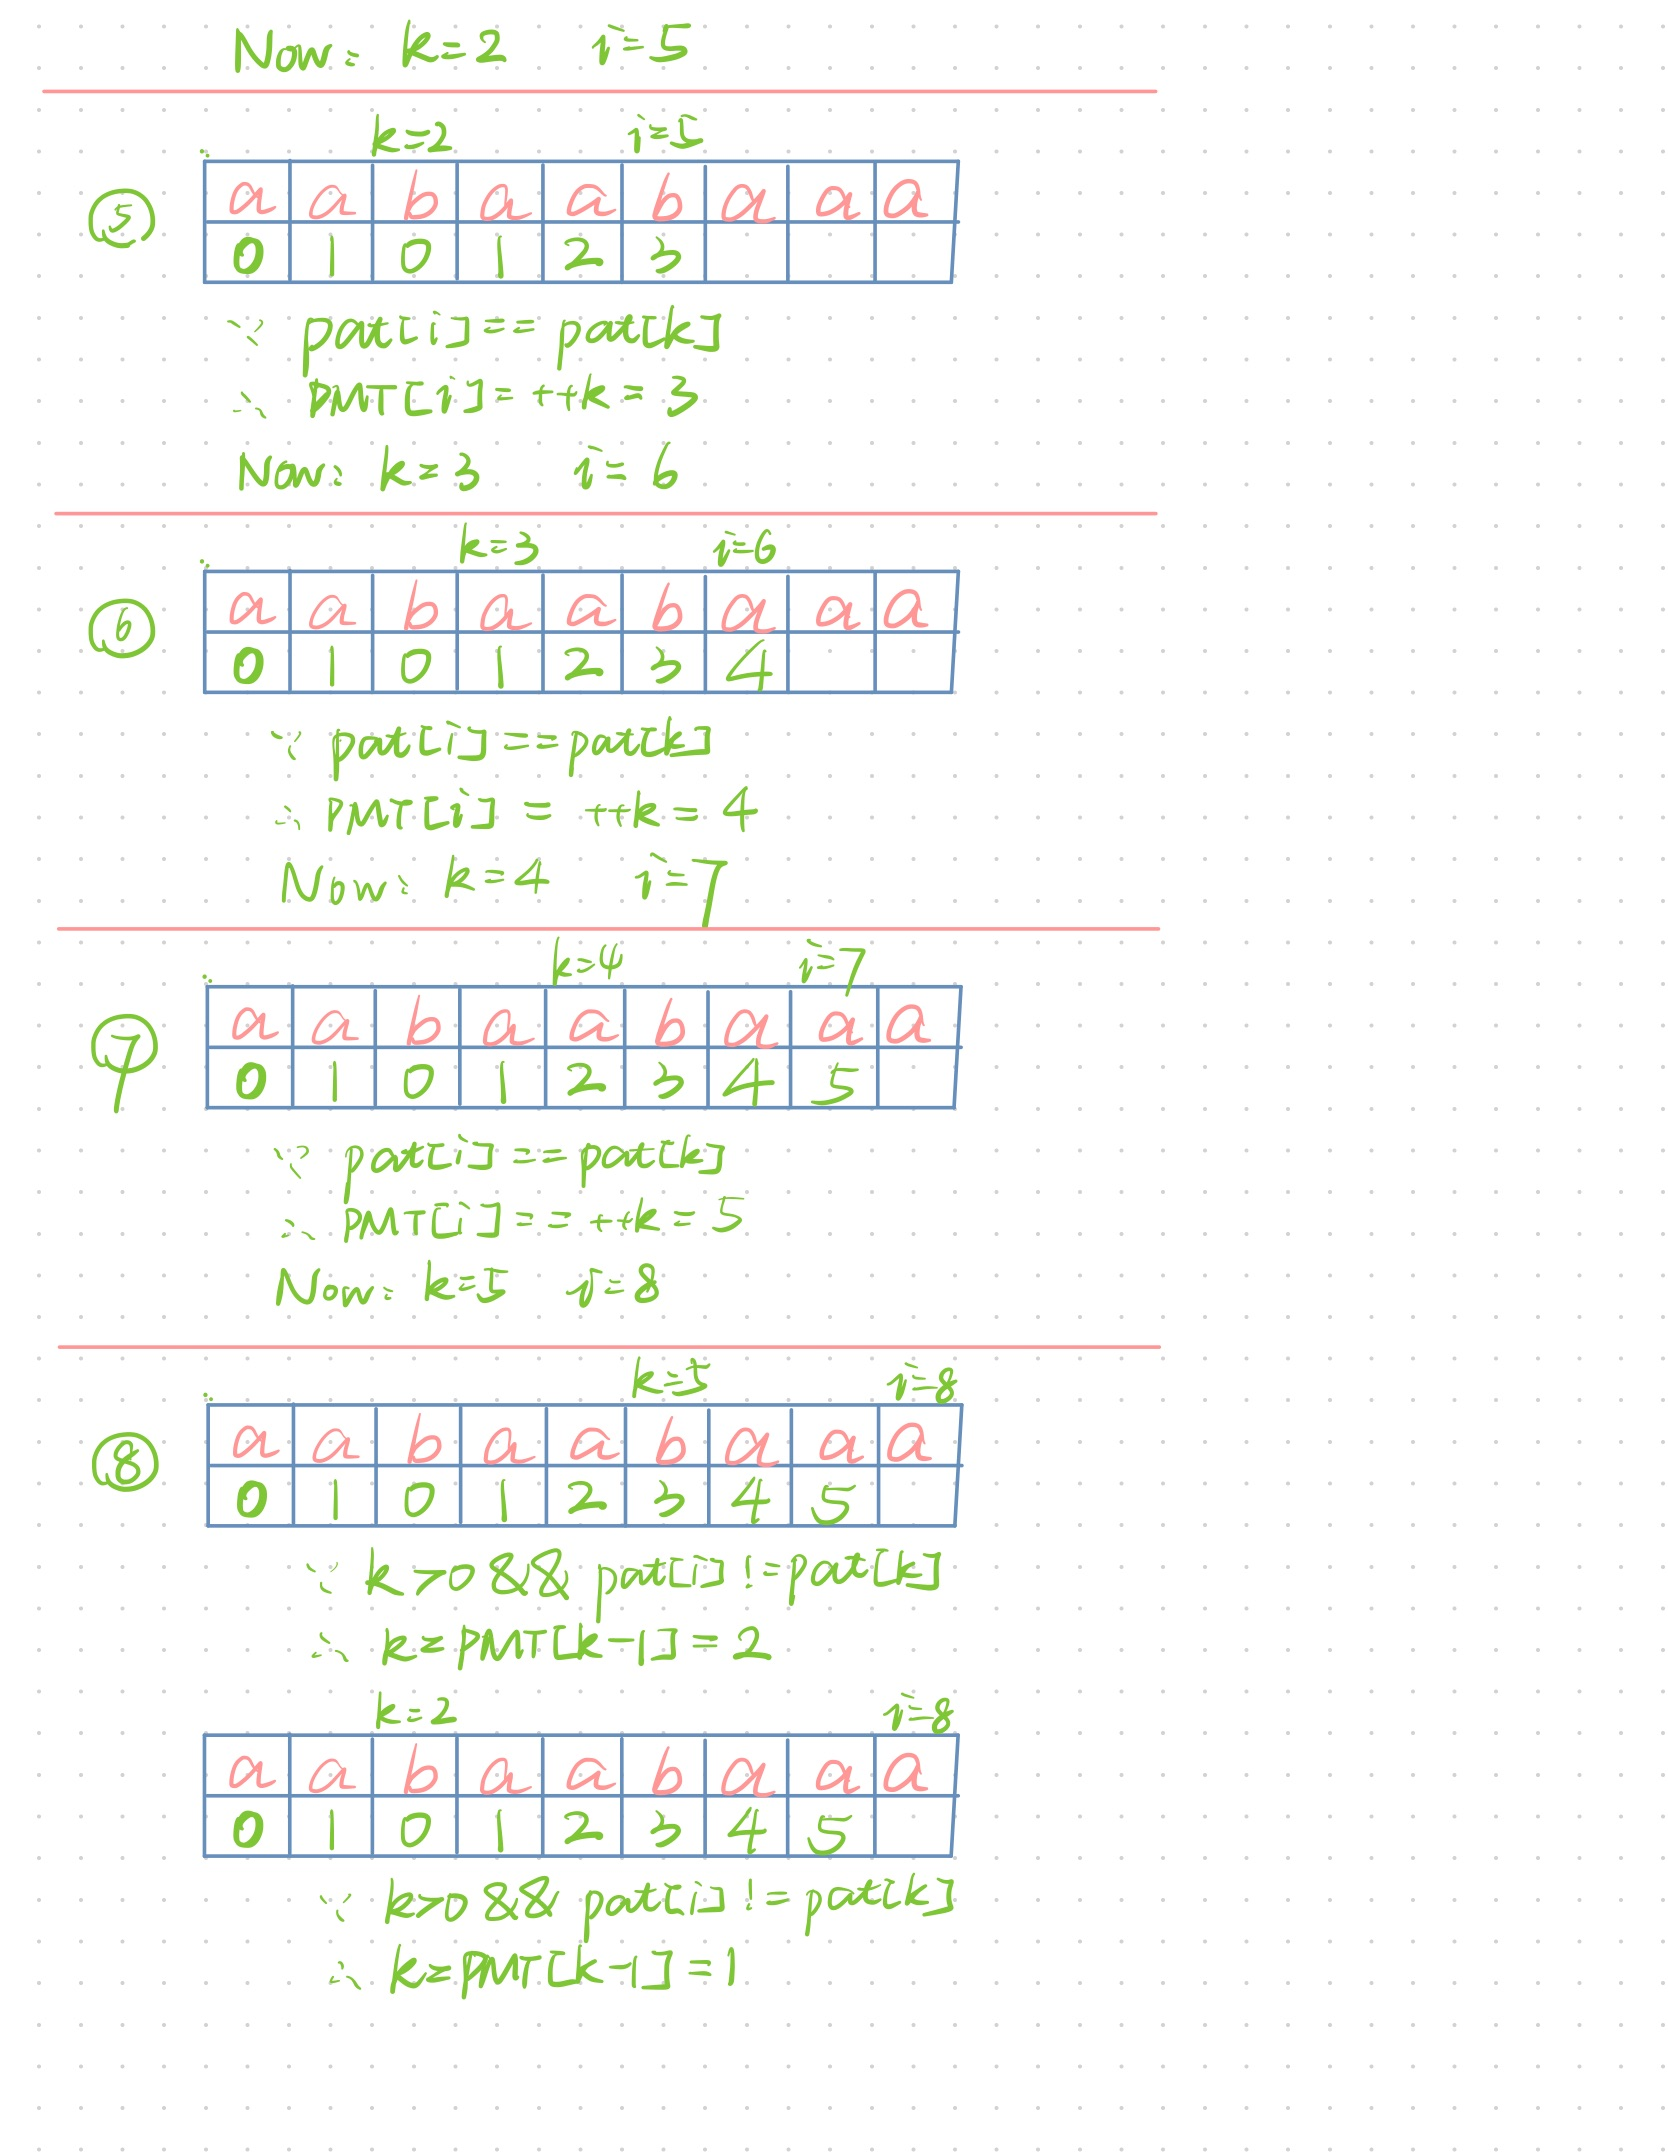 Now: k=2 i=5
k=2 i=5
⑤ a a b a a b a a a
0 1 0 1 2 3
∵ pat[i] == pat[k]
∴ PMT[i] = ++k = 3
Now: k=3 i=6
k=3 i=6
⑥ a a b a a b a a a
0 1 0 1 2 3 4
∵ pat[i] == pat[k]
∴ PMT[i] = ++k = 4
Now: k=4 i=7
k=4 i=7
⑦ a a b a a b a a a
0 1 0 1 2 3 4 5
∵ pat[i] == pat[k]
∴ PMT[i] == ++k = 5
Now: k=5 i=8
k=5 i=8
⑧ a a b a a b a a a
0 1 0 1 2 3 4 5
∵ k>0 && pat[i] != pat[k]
∴ k=PMT[k-1] = 2
k=2 i=8
a a b a a b a a a
0 1 0 1 2 3 4 5
∵ k>0 && pat[i] != pat[k]
∴ k=PMT[k-1] = 1